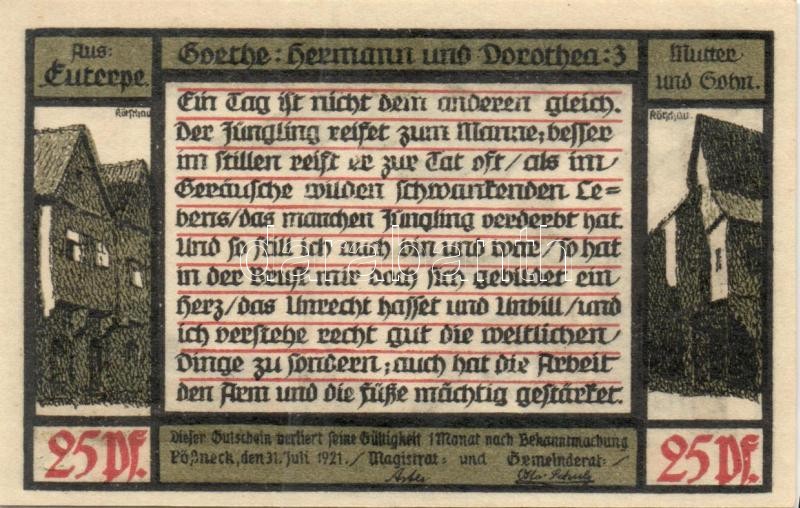 Aus:
Euterpe.
Goethe: Hermann und Dorothea: 3
Mutter
und Sohn.
Rötschau
Rötschau.
Ein Tag ist nicht dem anderen gleich.
Der Jüngling reifet zum Manne; besser
im stillen reift er zur Tat oft/als im/
Geräusche wilden schwankenden Le=
bens/das manchen Jüngling verderbt hat.
Und so still ich auch bin und war/so hat
in der Brust mir doch sich gebildet ein
Herz/das Unrecht hasset und Unbill/und
ich verstehe recht gut die weltlichen/
Dinge zu sondern; auch hat die Arbeit
den Arm und die Füße mächtig gestärket.
darabanth
25 Pf.
Dieser Gutschein verliert seine Gültigkeit 1 Monat nach Bekanntmachung
Pößneck, den 31. Juli 1921./ Magistrat= und Gemeinderat=/
25 Pf.